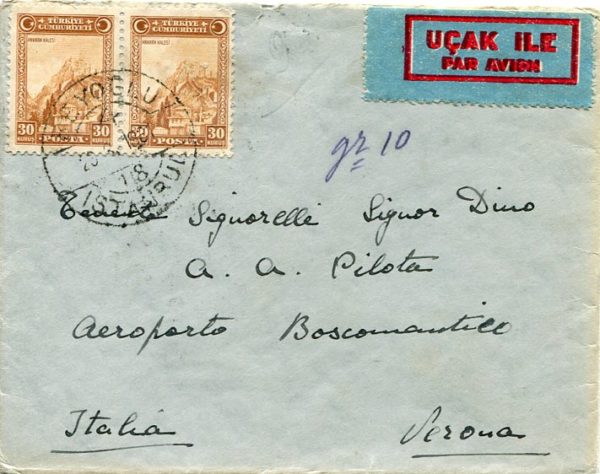 TÜRKİYE
CUMHURİYETİ
ANKARA KALESİ
30 30
KURUŞ POSTA KURUŞ
TÜRKİYE
CUMHURİYETİ
ANKARA KALESİ
30 30
KURUŞ POSTA KURUŞ
BEYOĞLU
18
ISTANBUL
UÇAK ILE
PAR AVION
gr 10
Tenente Signorelli Signor Dino
A. A. Pilota
Aeroporto Boscomantico
Italia Verona